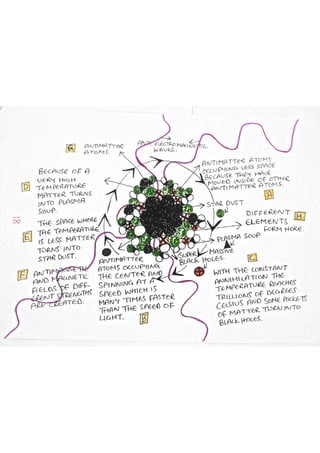 G
ANTIMATTER
ATOMS.
ANTI ELECTROMAGNETIC
WAVES.
ANTIMATTER ATOMS
OCCUPYING LESS SPACE
BECAUSE THEY HAVE
MOVED INSIDE OF OTHER
ANTIMATTER ATOMS.
A
STAR DUST
DIFFERENT
ELEMENTS
FORM HERE.
H
PLASMA SOUP
SUPER MASSIVE
BLACK HOLES.
C
WITH THE CONSTANT
ANNIHILATION THE
TEMPERATURE REACHES
TRILLIONS OF DEGREES
CELSIUS AND SOME POCKETS
OF MATTER TURN INTO
BLACK HOLES.
BECAUSE OF A
VERY HIGH
D
TEMPERATURE
MATTER TURNS
INTO PLASMA
SOUP.
THE SPACE WHERE
E
THE TEMPERATURE
IS LESS MATTER
TURNS INTO
STAR DUST.
F
ANTIMAGNETIC
AND MAGNETIC
FIELDS OF DIFF-
ERENT STRENGTHS
ARE CREATED.
ANTIMATTER
ATOMS OCCUPYING
THE CENTER AND
SPINNING AT A
SPEED WHICH IS
MANY TIMES FASTER
THAN THE SPEED OF
LIGHT.
B